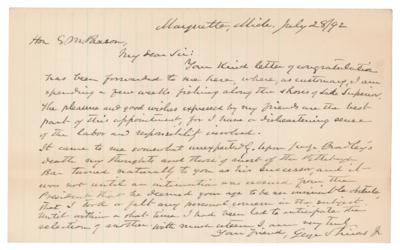 Marquette, Mich. July 28/92
Hon
My dear Sir:
Your kind letter of congratulation
has been forwarded to me here, where, as customary, I am
spending a few weeks fishing along the shores of Lake Superior.
The pleasure and good wishes expressed by my friends are the best
part of this appointment, for I have a disheartening sense
of the labor and responsibility involved.
It came to me somewhat unexpectedly. Upon Judge Bradley's
death my thoughts and those of most of the Pittsburgh
Bar turned naturally to you as his successor, and it
was not until an intimation was received from the
President that he deemed your age to be an insuperable obstacle
that I took or felt any personal concern in the subject.
Until within a short time I had been led to anticipate the
selection of another with much . I am, very truly
Your friend, George Shiras Jr